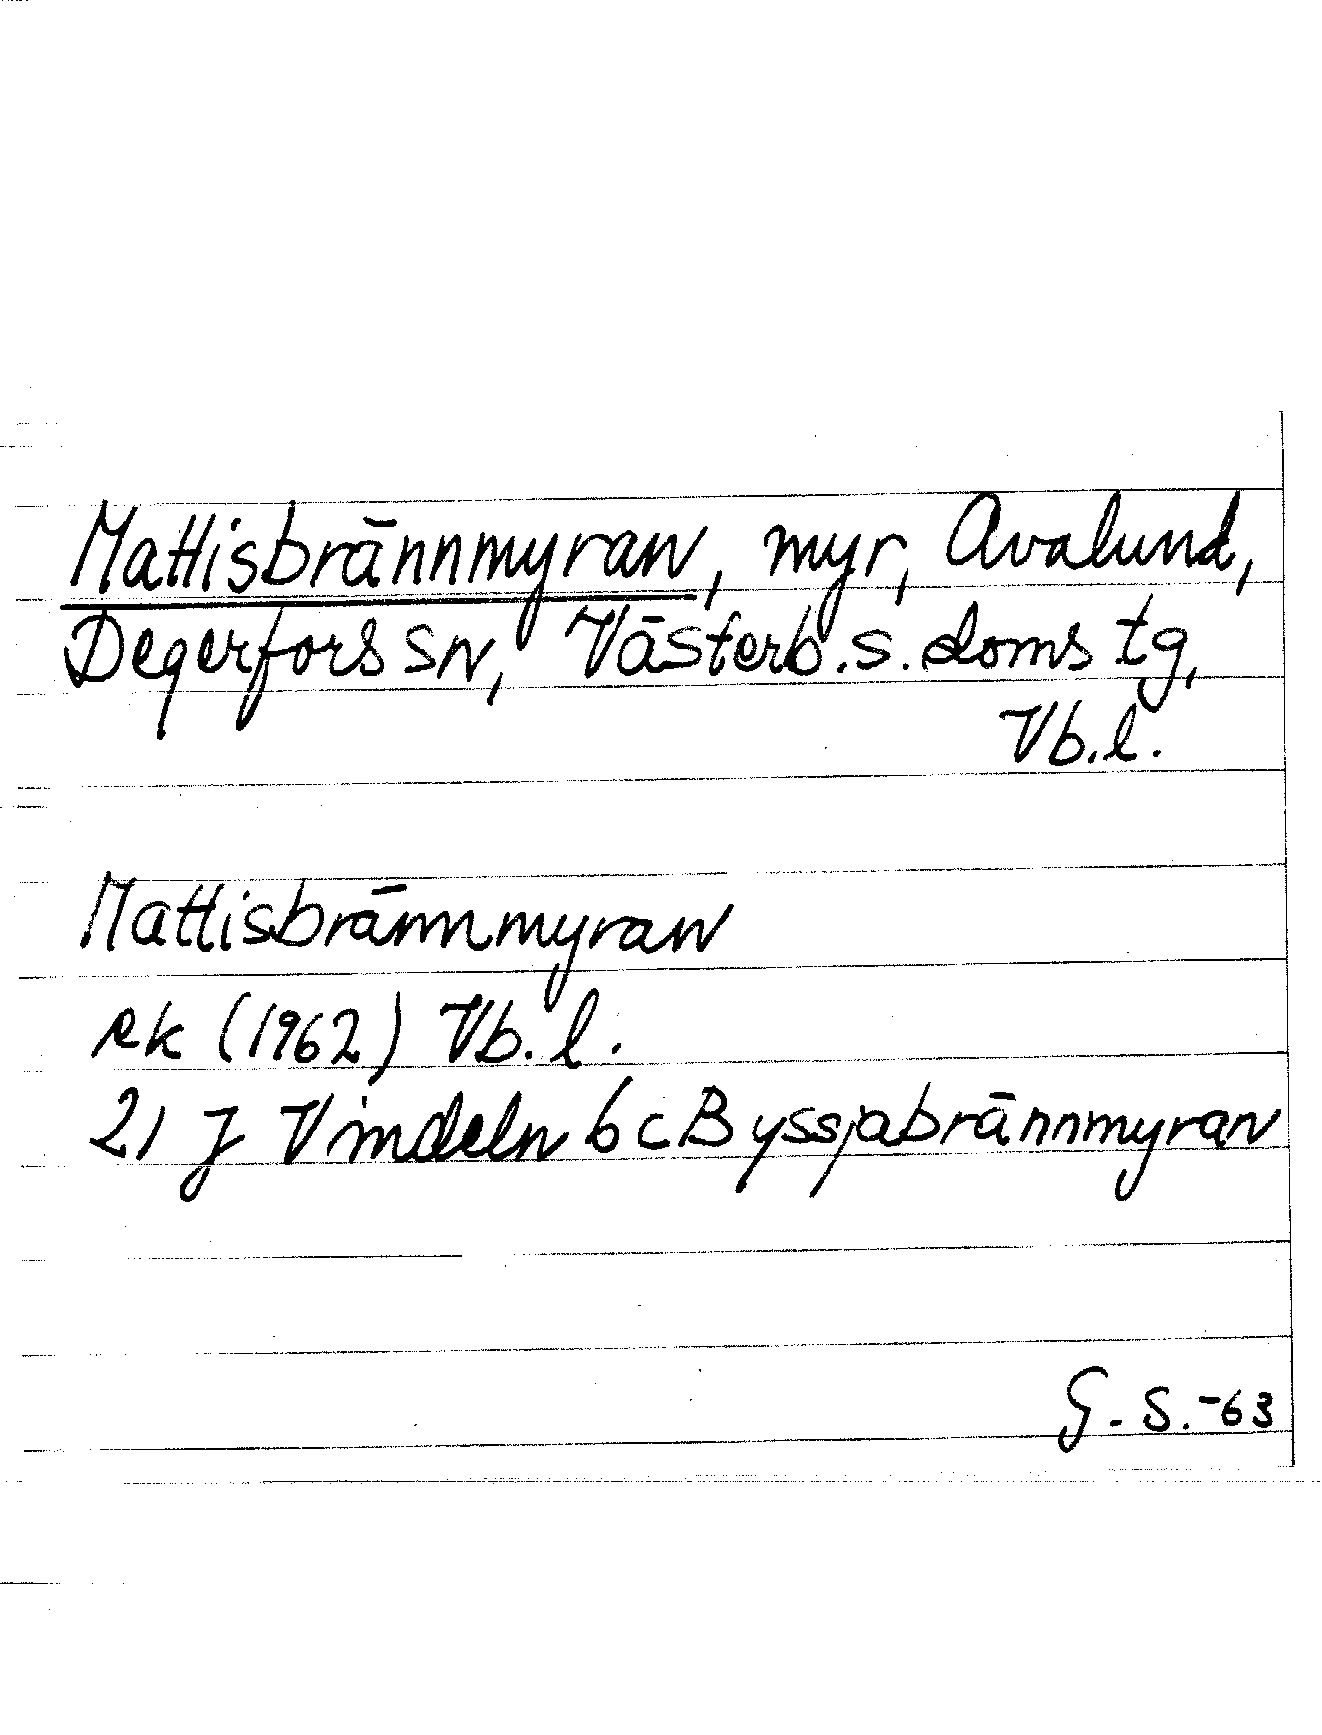 Mattisbrännmyran, myr, Avalund,
Degerfors sn, Västerb. s. doms tg,
Vb.l.
Mattisbrännmyran
ek (1962) Vb.l.
21 J Vindeln 6 c Byssjabrännmyran
G. S. -63